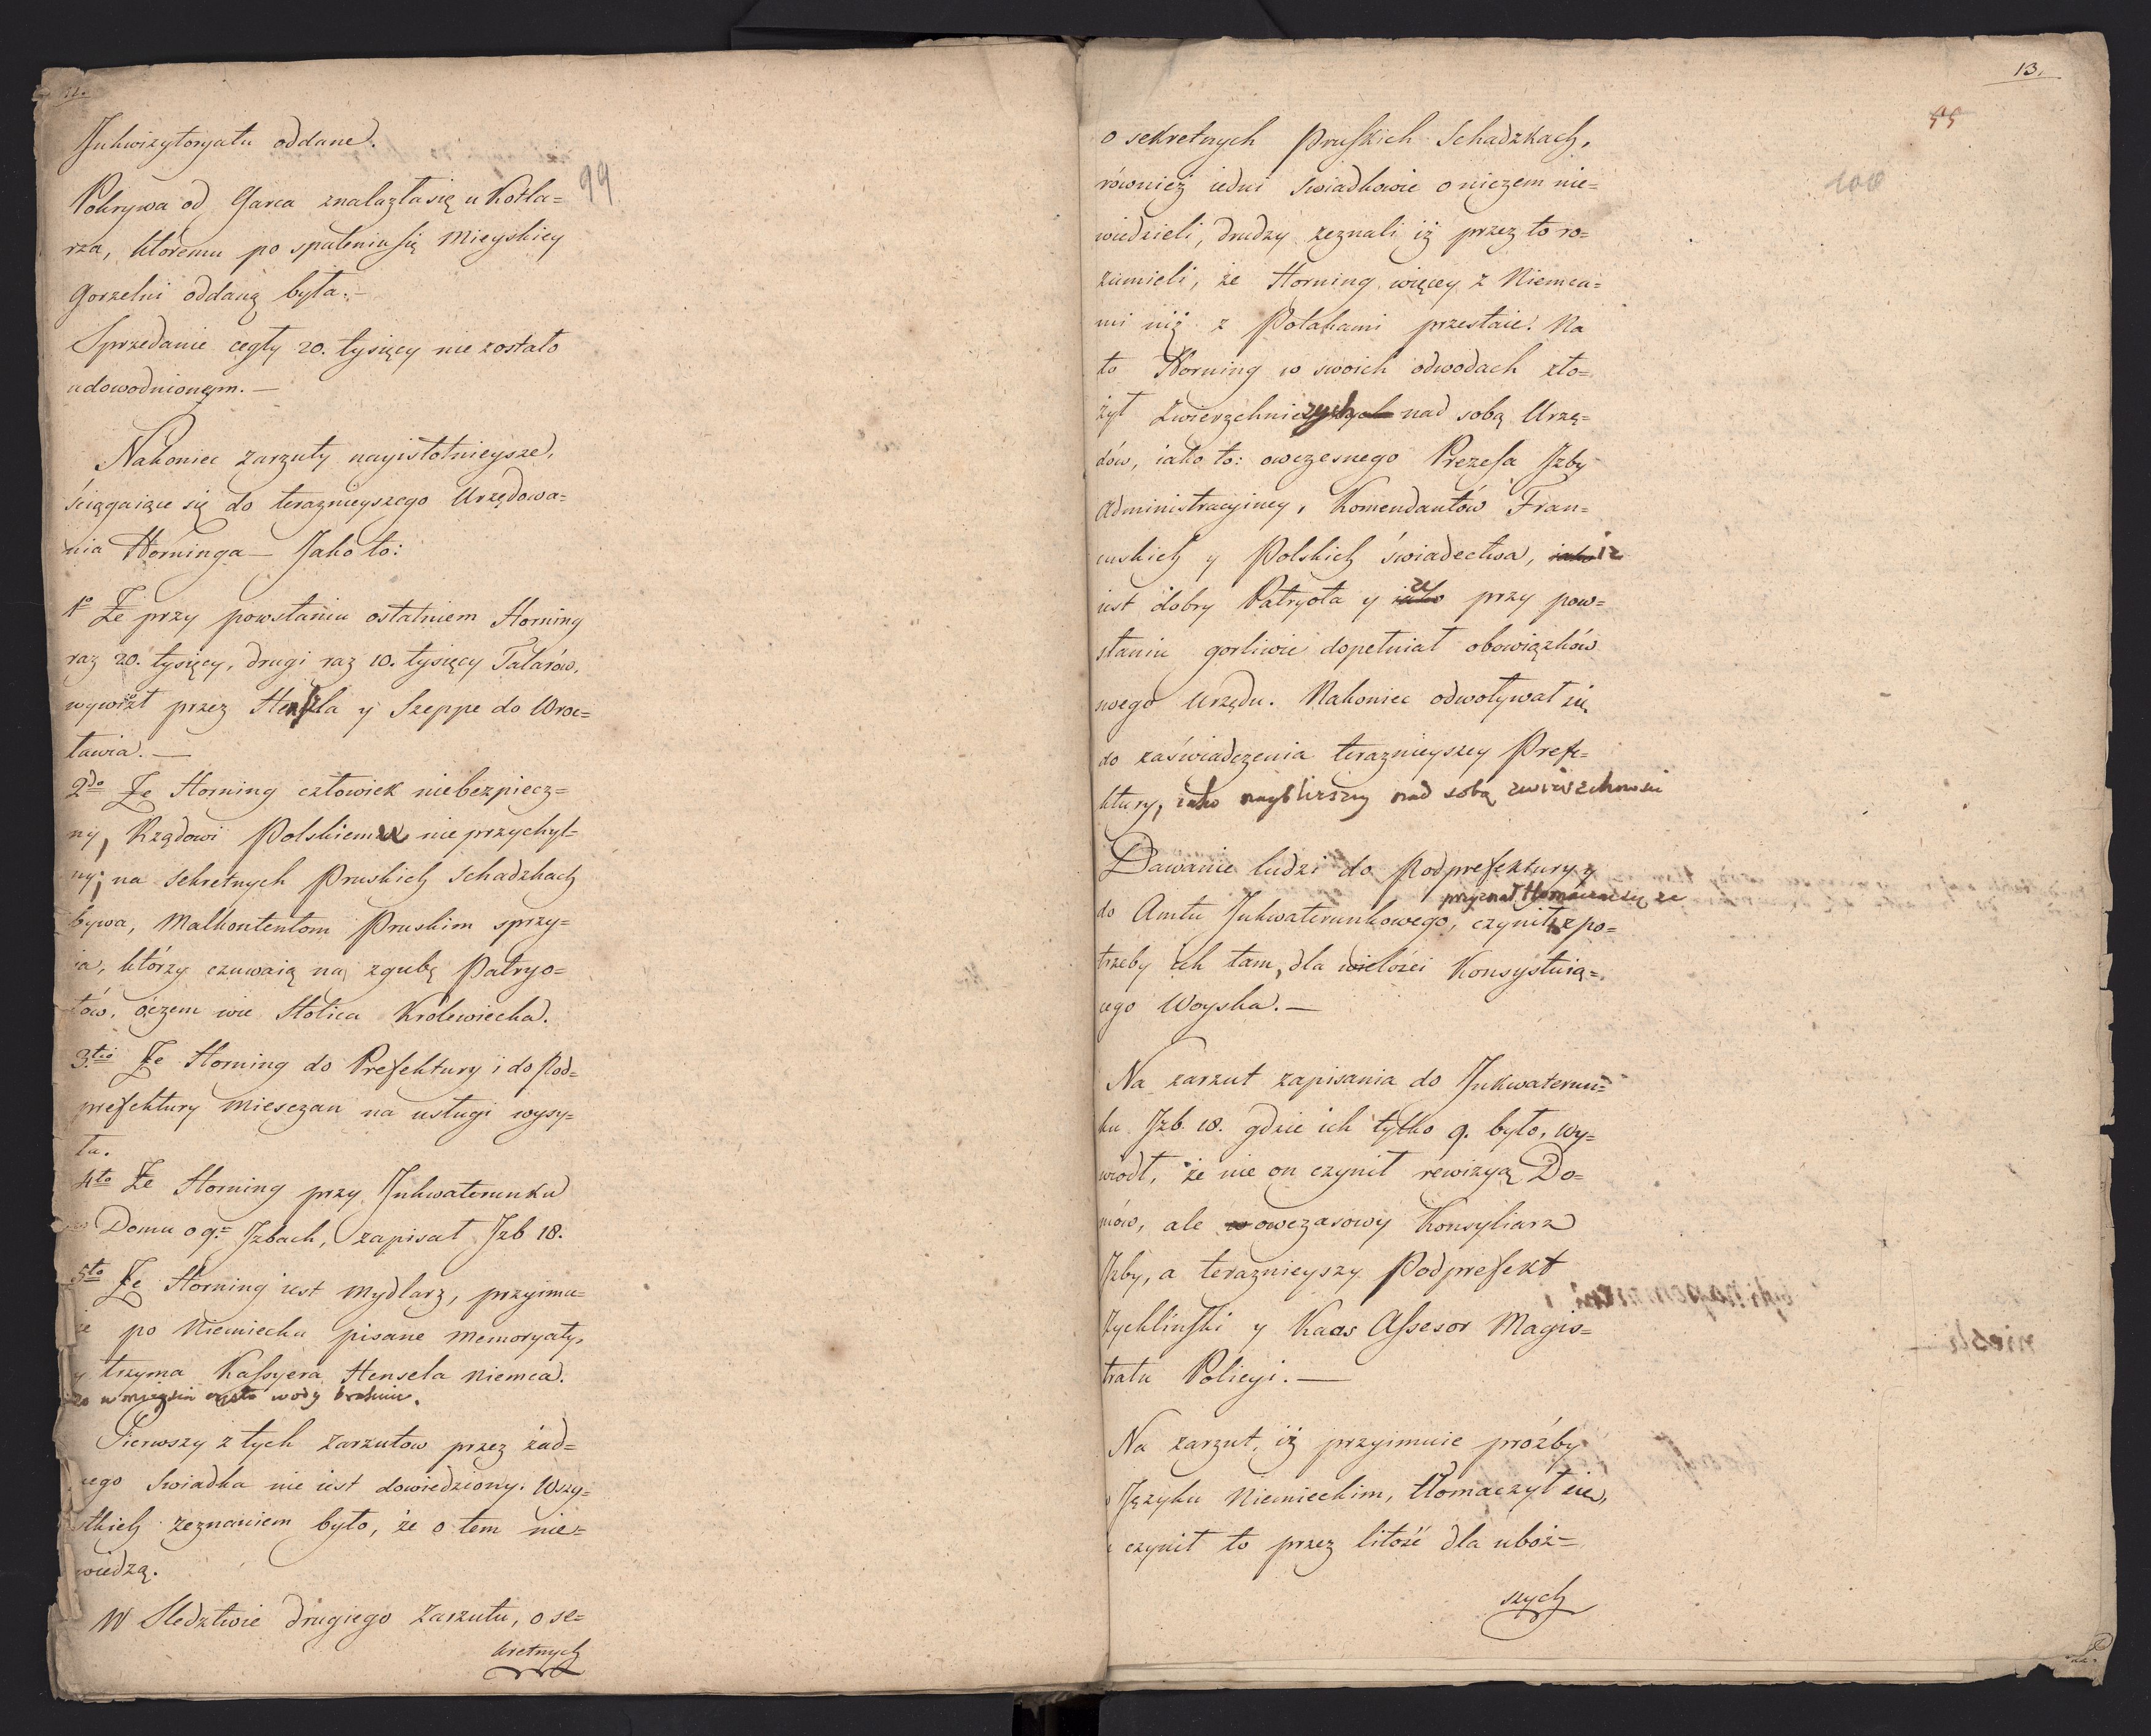 12.
Inkwizytoryatu oddane.
99
Pokrywa od Garca znalazła się u Kotla=
rza, ktoremu po spaleniu się Mieyskiey
Gorzelni oddaną była.—
Sprzedanie cegły 20. tysięcy nie zostało
udowodnionym.—
Nakoniec zarzuty nayistotnieysze,
ściągaiące się do teraznieyszego Urzędowa=
nia Horninga — Jako to:
1o Że przy powstaniu ostatniem Horning
raz 20. tysięcy, drugi raz 10. tysięcy Talarów,
wywiózł przez Henzla y Szeppe do Wroc=
ławia.—
2do Że Horning człowiek niebezpiecz=
ny, Rządowi Polskiemu nieprzychyl=
ny; na sekretnych Pruskich Schadzkach
bywa, Malkontentom Pruskim sprzy=
ia, którzy czuwaią na zgubę Patryo=
tów, oczem wie Stolica Królewiecka.
3tio Że Horning do Prefektury i do Pod=
prefektury Miesczan na usługi wysy=
ła.
4to Że Horning przy Inkwaterunku
w Domu o 9. Izbach, zapisał Izb 18.
5to Że Horning iest Mydlarz, przyimu=
ie po Niemiecku pisane Memoryały,
y trzyma Kassyera Hensela Niemca.
że w mieyscu często wody braknie.
Pierwszy z tych Zarzutow przez żad=
nego Swiadka nie iest dowiedziony. Wszy=
stkich zeznaniem było, że o tem nie=
wiedzą.
W Sledztwie drugiego Zarzutu, o se=
kretnych
13.
55
100
o sekretnych Pruskich Schadzkach,
również iedni Swiadkowie o niczem nie=
wiedzieli, drudzy zeznali iż przez to ro=
zumieli, że Horning więcey z Niemca=
mi niż z Polakami przestaie. Na
to Horning w swoich odwodach zło=
żył Zwierzchniczych nad sobą Urzę=
dów, iako to: owczesnego Prezesa Izby
Administracyiney, Komendantów Fran=
cuskich y Polskich świadectwa, iako iż
iest dobry Patryota y iako że przy pow=
staniu gorliwie dopełniał obowiązków
swego Urzędu. Nakoniec odwoływał się
do zaświadczenia teraznieyszey Prefe=
ktury, iako naybliższey nad sobą zwierzchnosci
Dawanie ludzi do Podprefektury y
przyznał tłomacząc się że
do Amtu Inkwaterunkowego, czynił z po=
trzeby ich tam, dla wielości Konsystuią=
cego Woyska.—
Na zarzut zapisania do Inkwaterun=
ku Izb 18. gdzie ich tylko 9. było, wy=
wiodł, że nie on czynił rewizyą Do=
mów, ale owczasowy Konsyliarz
Izby, a teraznieyszy Podprefekt
Zychlinski y Kaas Assesor Magis=
tratu Policyi.—
Na zarzut, iż przyimuie proźby
w Języku Niemieckim, tłomaczył się,
i czynił to przez litość dla uboż=
szych